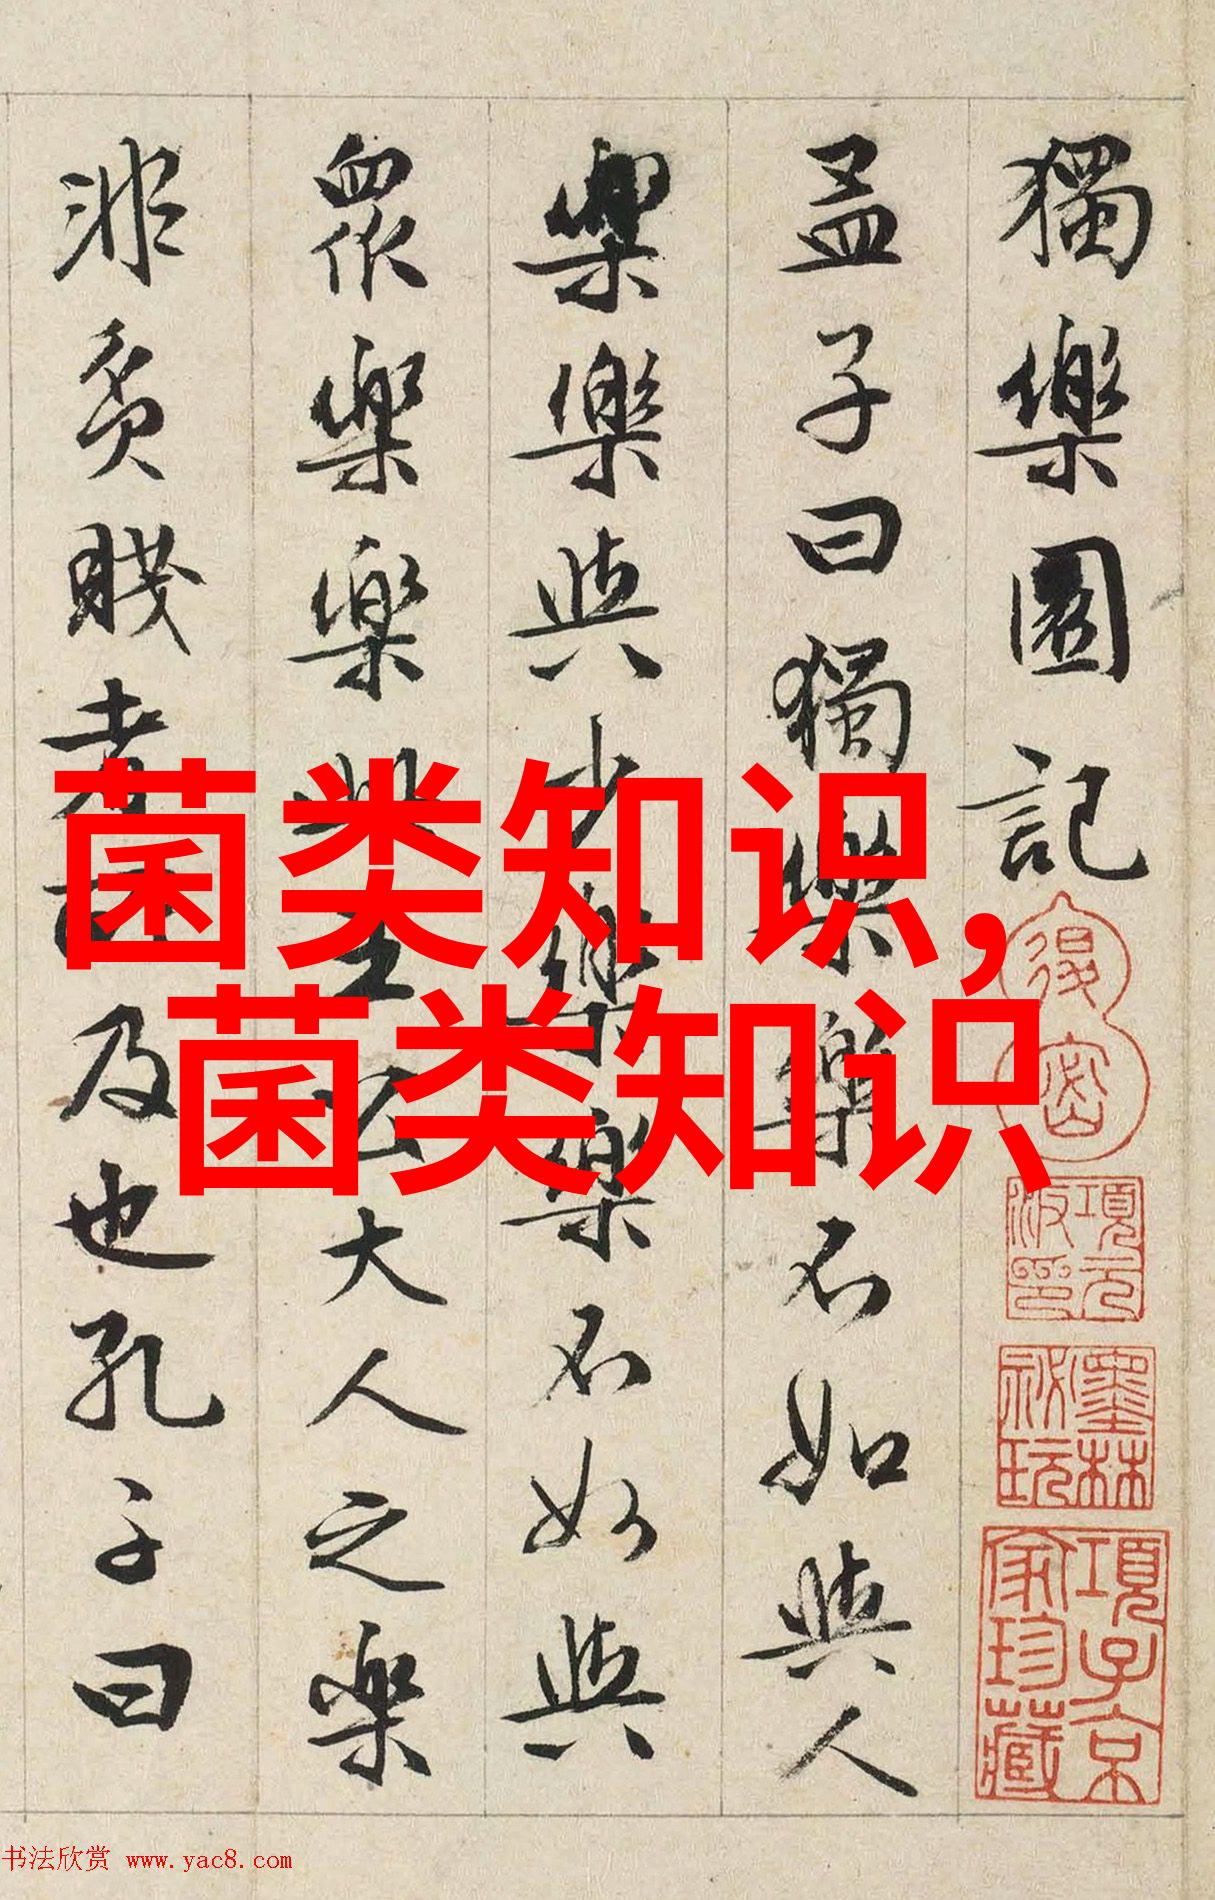 獨樂園記
孟子曰獨樂樂不如與人
樂樂與少樂樂不如與
衆樂樂此王公大人之樂
非貧賤者及也孔子曰
菌类知识,
菌类知识
項元汴印
墨林秘玩
項子京家珍藏
书法欣赏 www.yac8.com